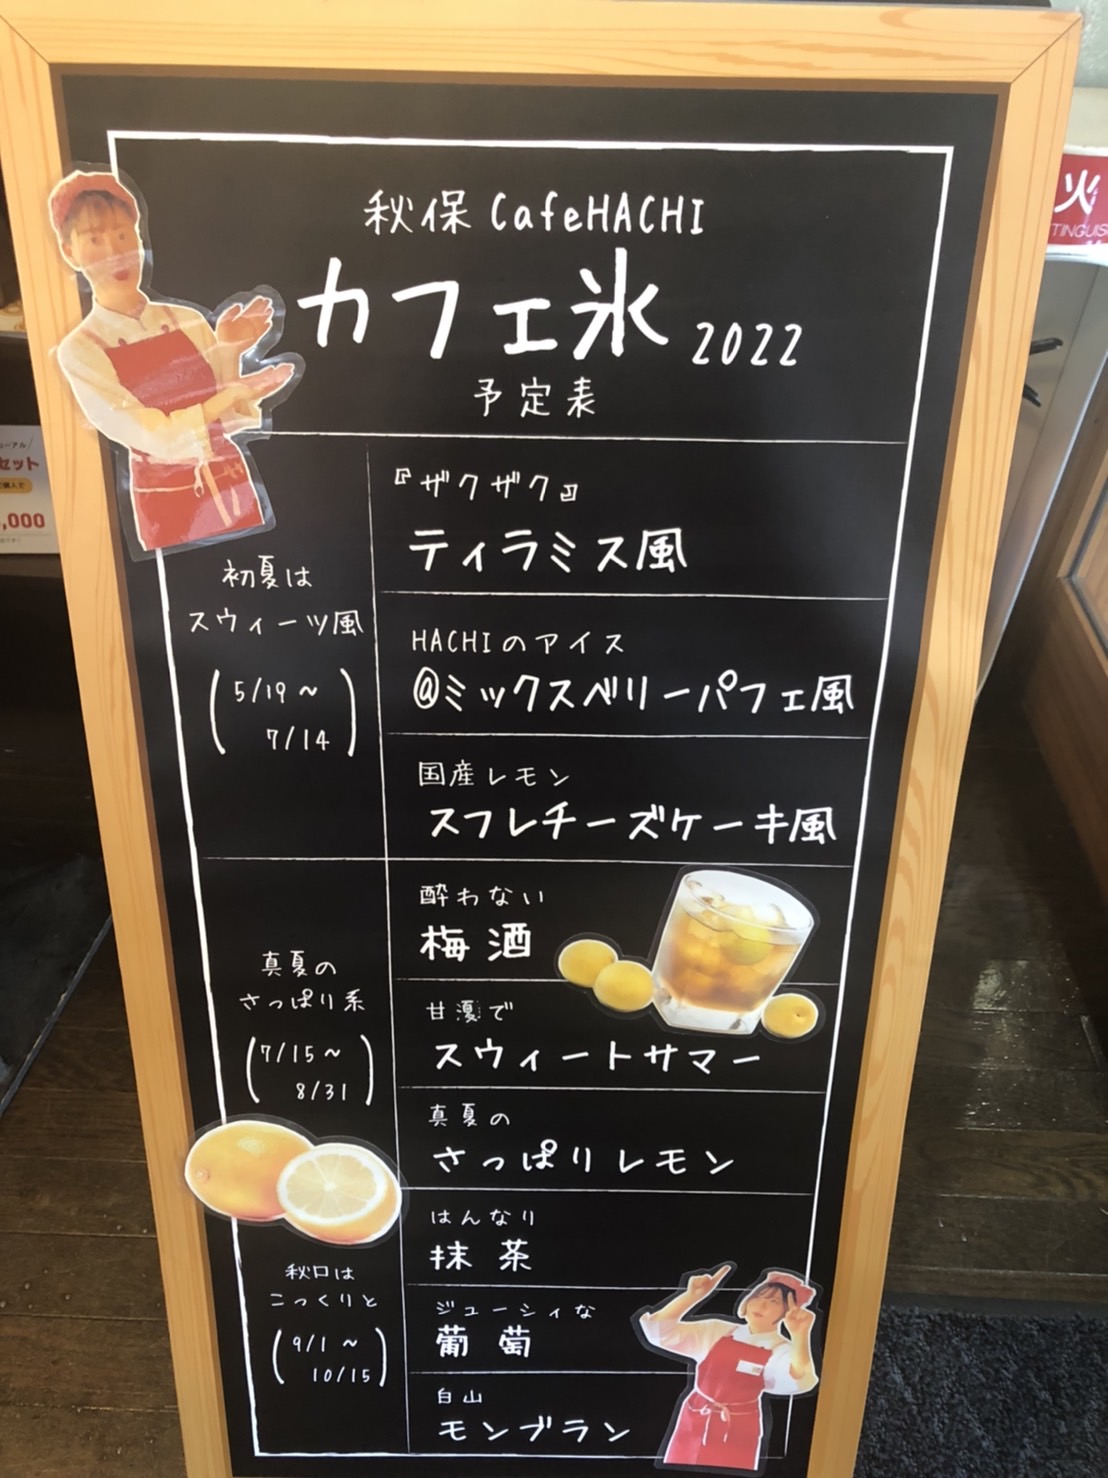 秋保 CafeHACHI
カフェ氷 2022
予定表
初夏は
スウィーツ風
(5/19～
7/14)
『ザクザク』
ティラミス風
HACHIのアイス
@ミックスベリーパフェ風
国産レモン
スフレチーズケーキ風
真夏の
さっぱり系
(7/15～
8/31)
酔わない
梅酒
甘夏で
スウィートサマー
真夏の
さっぱりレモン
秋口は
こっくりと
(9/1～
10/15)
はんなり
抹茶
ジューシィな
葡萄
白山
モンブラン
火
TINGUIS
セット
,000